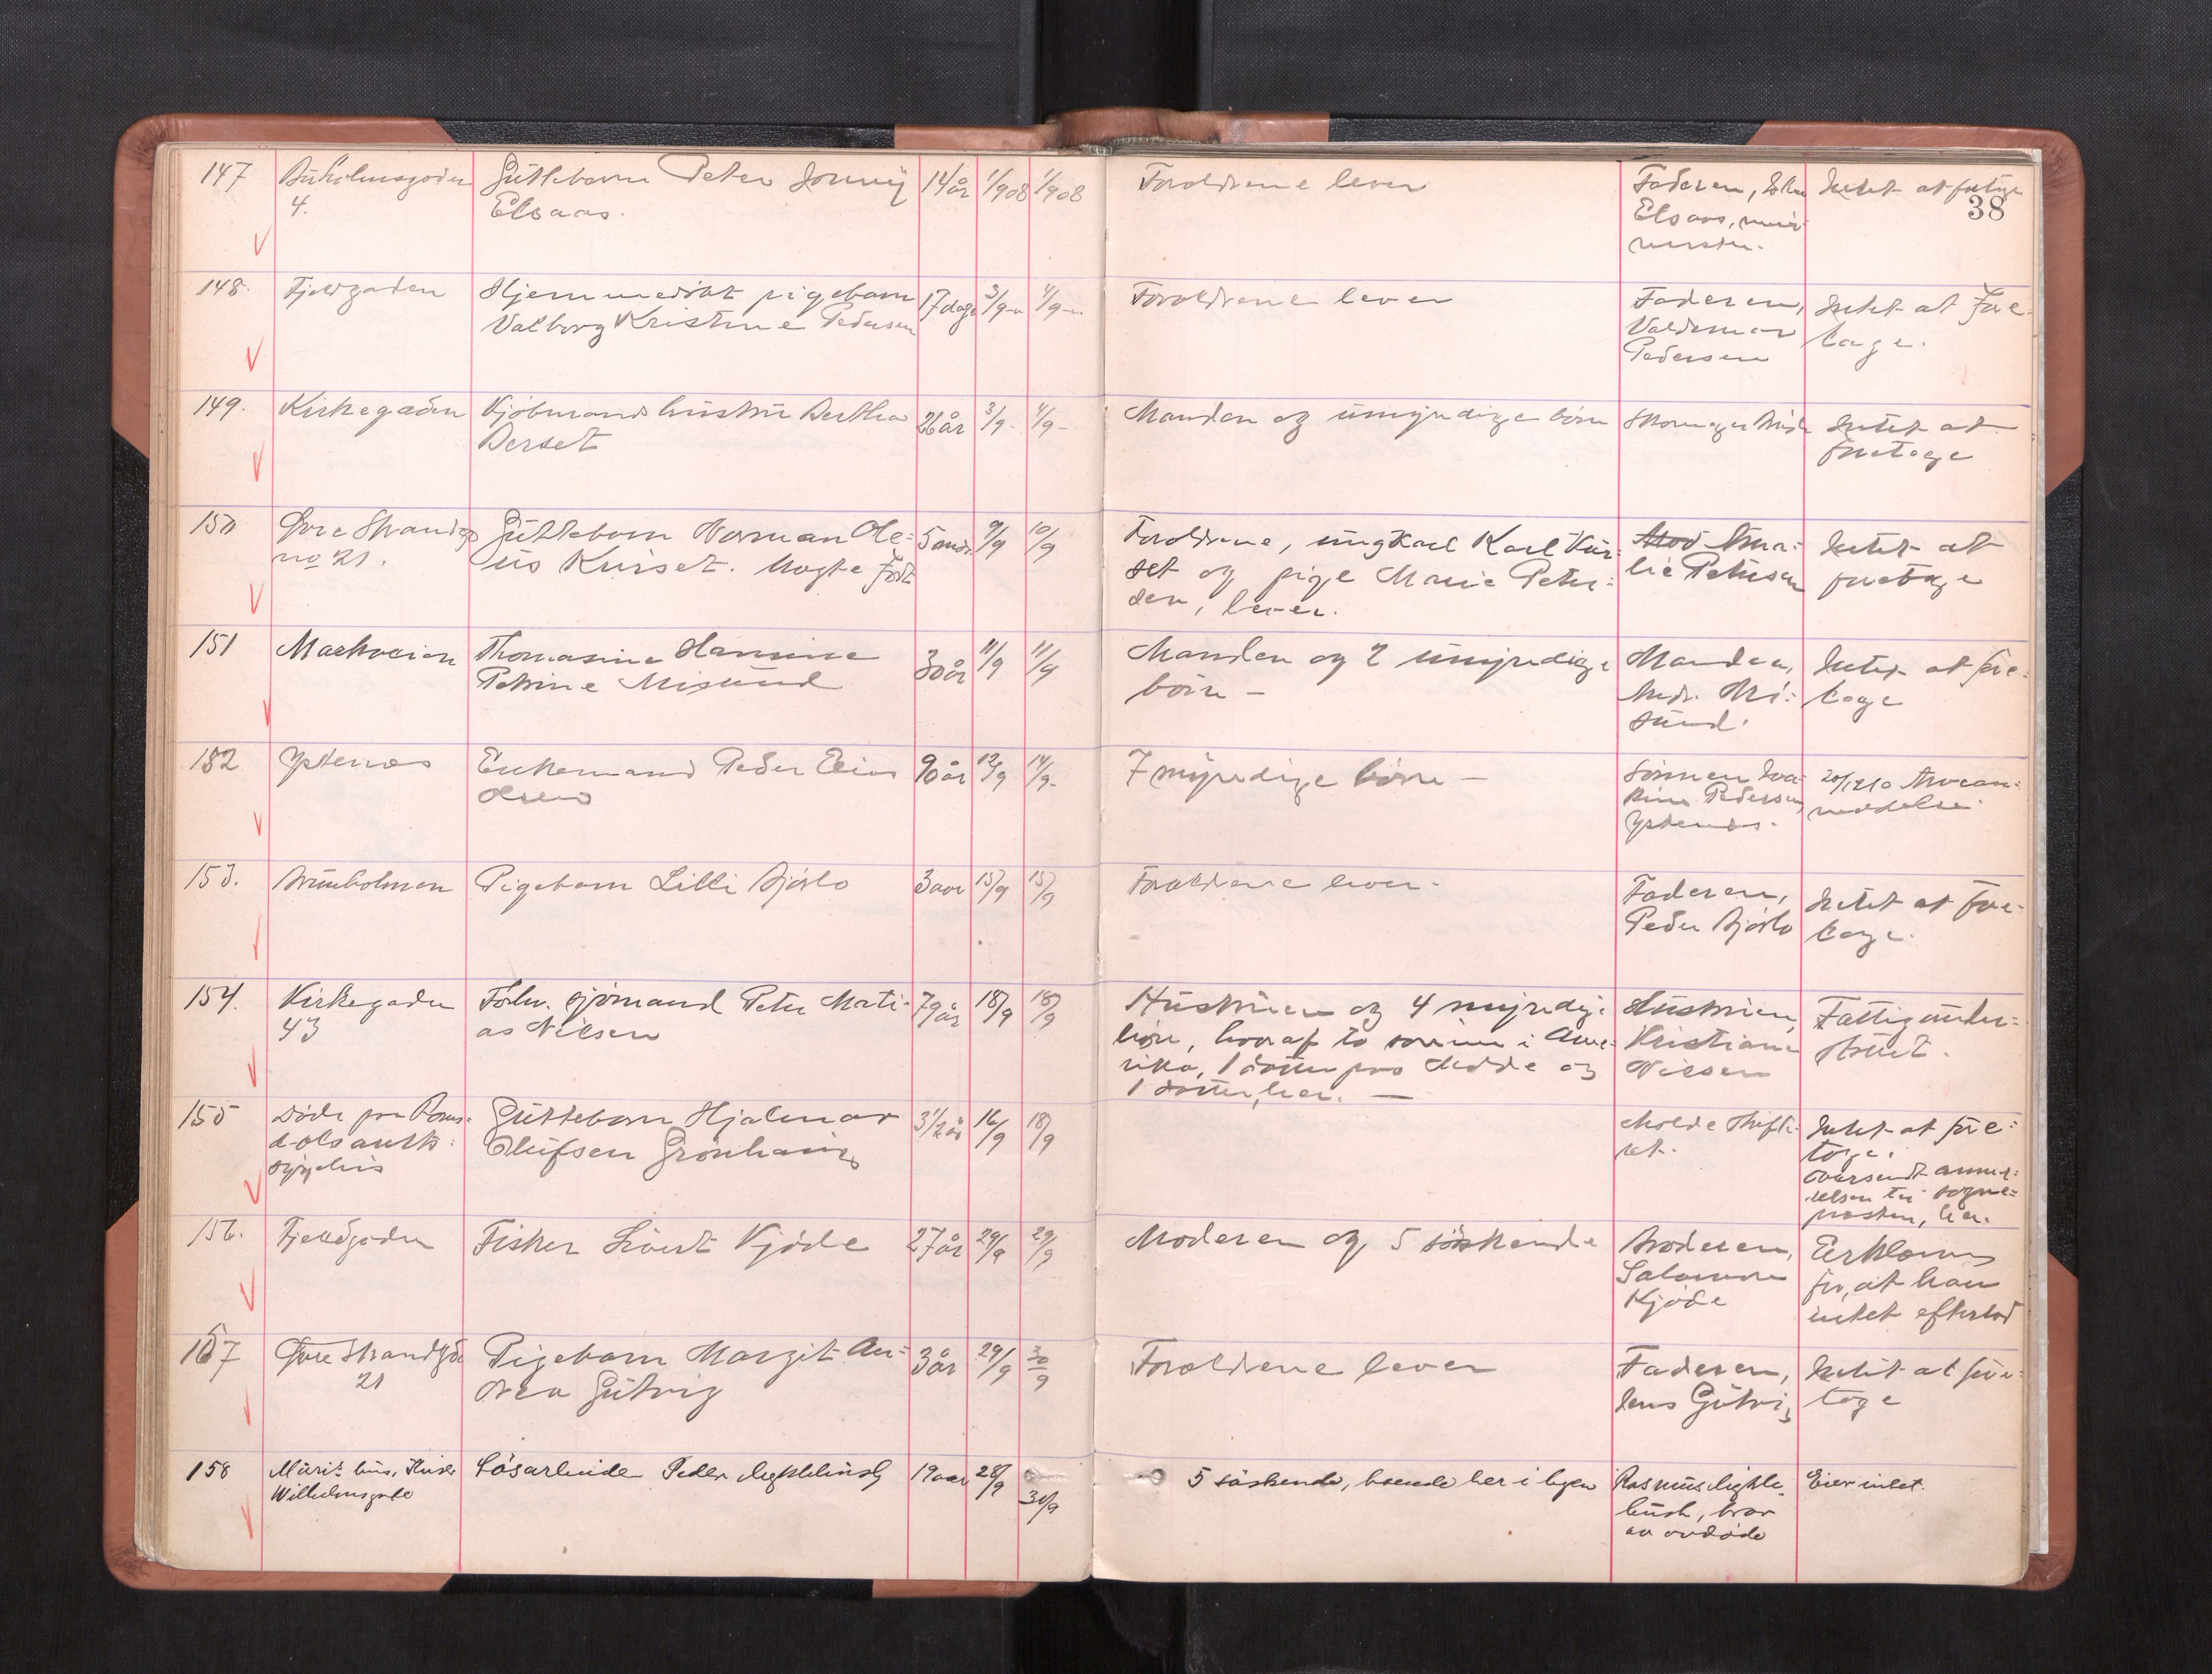 38
147
4.
Gutteborn Peter Jonny
Elsaas.
14 år
1/9 08
1/9 08
Forældrene lever
Faderen, John
Elsaas, mur-
mester.
Intet at foretage
148.
Fjeldgaden
Hjemmedøbt pigebarn
Valborg Kristine Pedersen
17 dage
3/9
4/9
Forældrene lever
Faderen,
Valdemar
Pedersen
Intet at fore-
tage.
149.
Kirkegaden
Kjøbmandshustru Berthe
Berset
26 år
3/9-
4/9-
Manden og umyndige børn
Intet at
foretage
150
Øvre Strandg
no 21.
Guttebarn Norman Ole-
us Kurset. Uægte født
5 mdr.
9/9
10/9
Forældrene, ungkarl Karl Kur-
set og pige Marie Peter-
sen, lever.
Ama-
lie Petersen
Intet at
foretage
151
Markveien
Thomasine Hansine
Petrine Misund
30 år
11/9
11/9
Manden og 2 umyndige
børn -
Manden,
Andr. Mi-
sund.
Intet at fore-
tage
152
Ystenes
Enkemand Peder Elias
Olsen
90 år
12/9
14/9-
7 myndige børn -
Sønnen Joa-
kim Pedersen
Ystenes.
20/12 10
153.
Pigebarn Lilli Bjørlo
3 aar
15/9
15/9
Forældrene lever.
Faderen,
Peder Bjørlo
Intet at fore-
tage.
154.
Kirkegaden
43
Forhv. sjømand Peter Mati-
as Nilsen
79 år
18/9
18/9
Hustruen og 4 myndige
børn, hvoraf to sønner i Ame-
rika, 1 datter paa Molde og
1 datter, her. -
Hustruen,
Kristiane
Nilsen
Fattigunder-
støttet.
155
Døde paa Roms-
dals amts
sygehus
Guttebarn Hjalmar
Olufsen Grønhaug
3 1/2 år
16/9
18/9
Molde Skifte-
ret.
Intet at fore-
tage.
Oversendt anmel-
delsen til sogne-
presten, her.
156.
Fjeldgaden
Fisker Sivert Kjøde
27 år
29/9
29/9
Moderen og 5 søskende
Broderen,
Salomon
Kjøde
Erklæring
for, at han
intet efterlod
157
Øvre Strandgd
21
Pigebarn Margit An-
drea Gutvig
3 år
29/9
30/9
Forældrene lever
Faderen,
Jens Gutvig
Intet at fore-
tage
158
Murit. hus, Keiser
Wilhelmsgate
Løsarbeider Peder Løgtebush
19 aar
28/9
30/9
5 søskende, boende her i byen
Rasmus Løgte-
bush, bror
av avdøde
Eier intet.